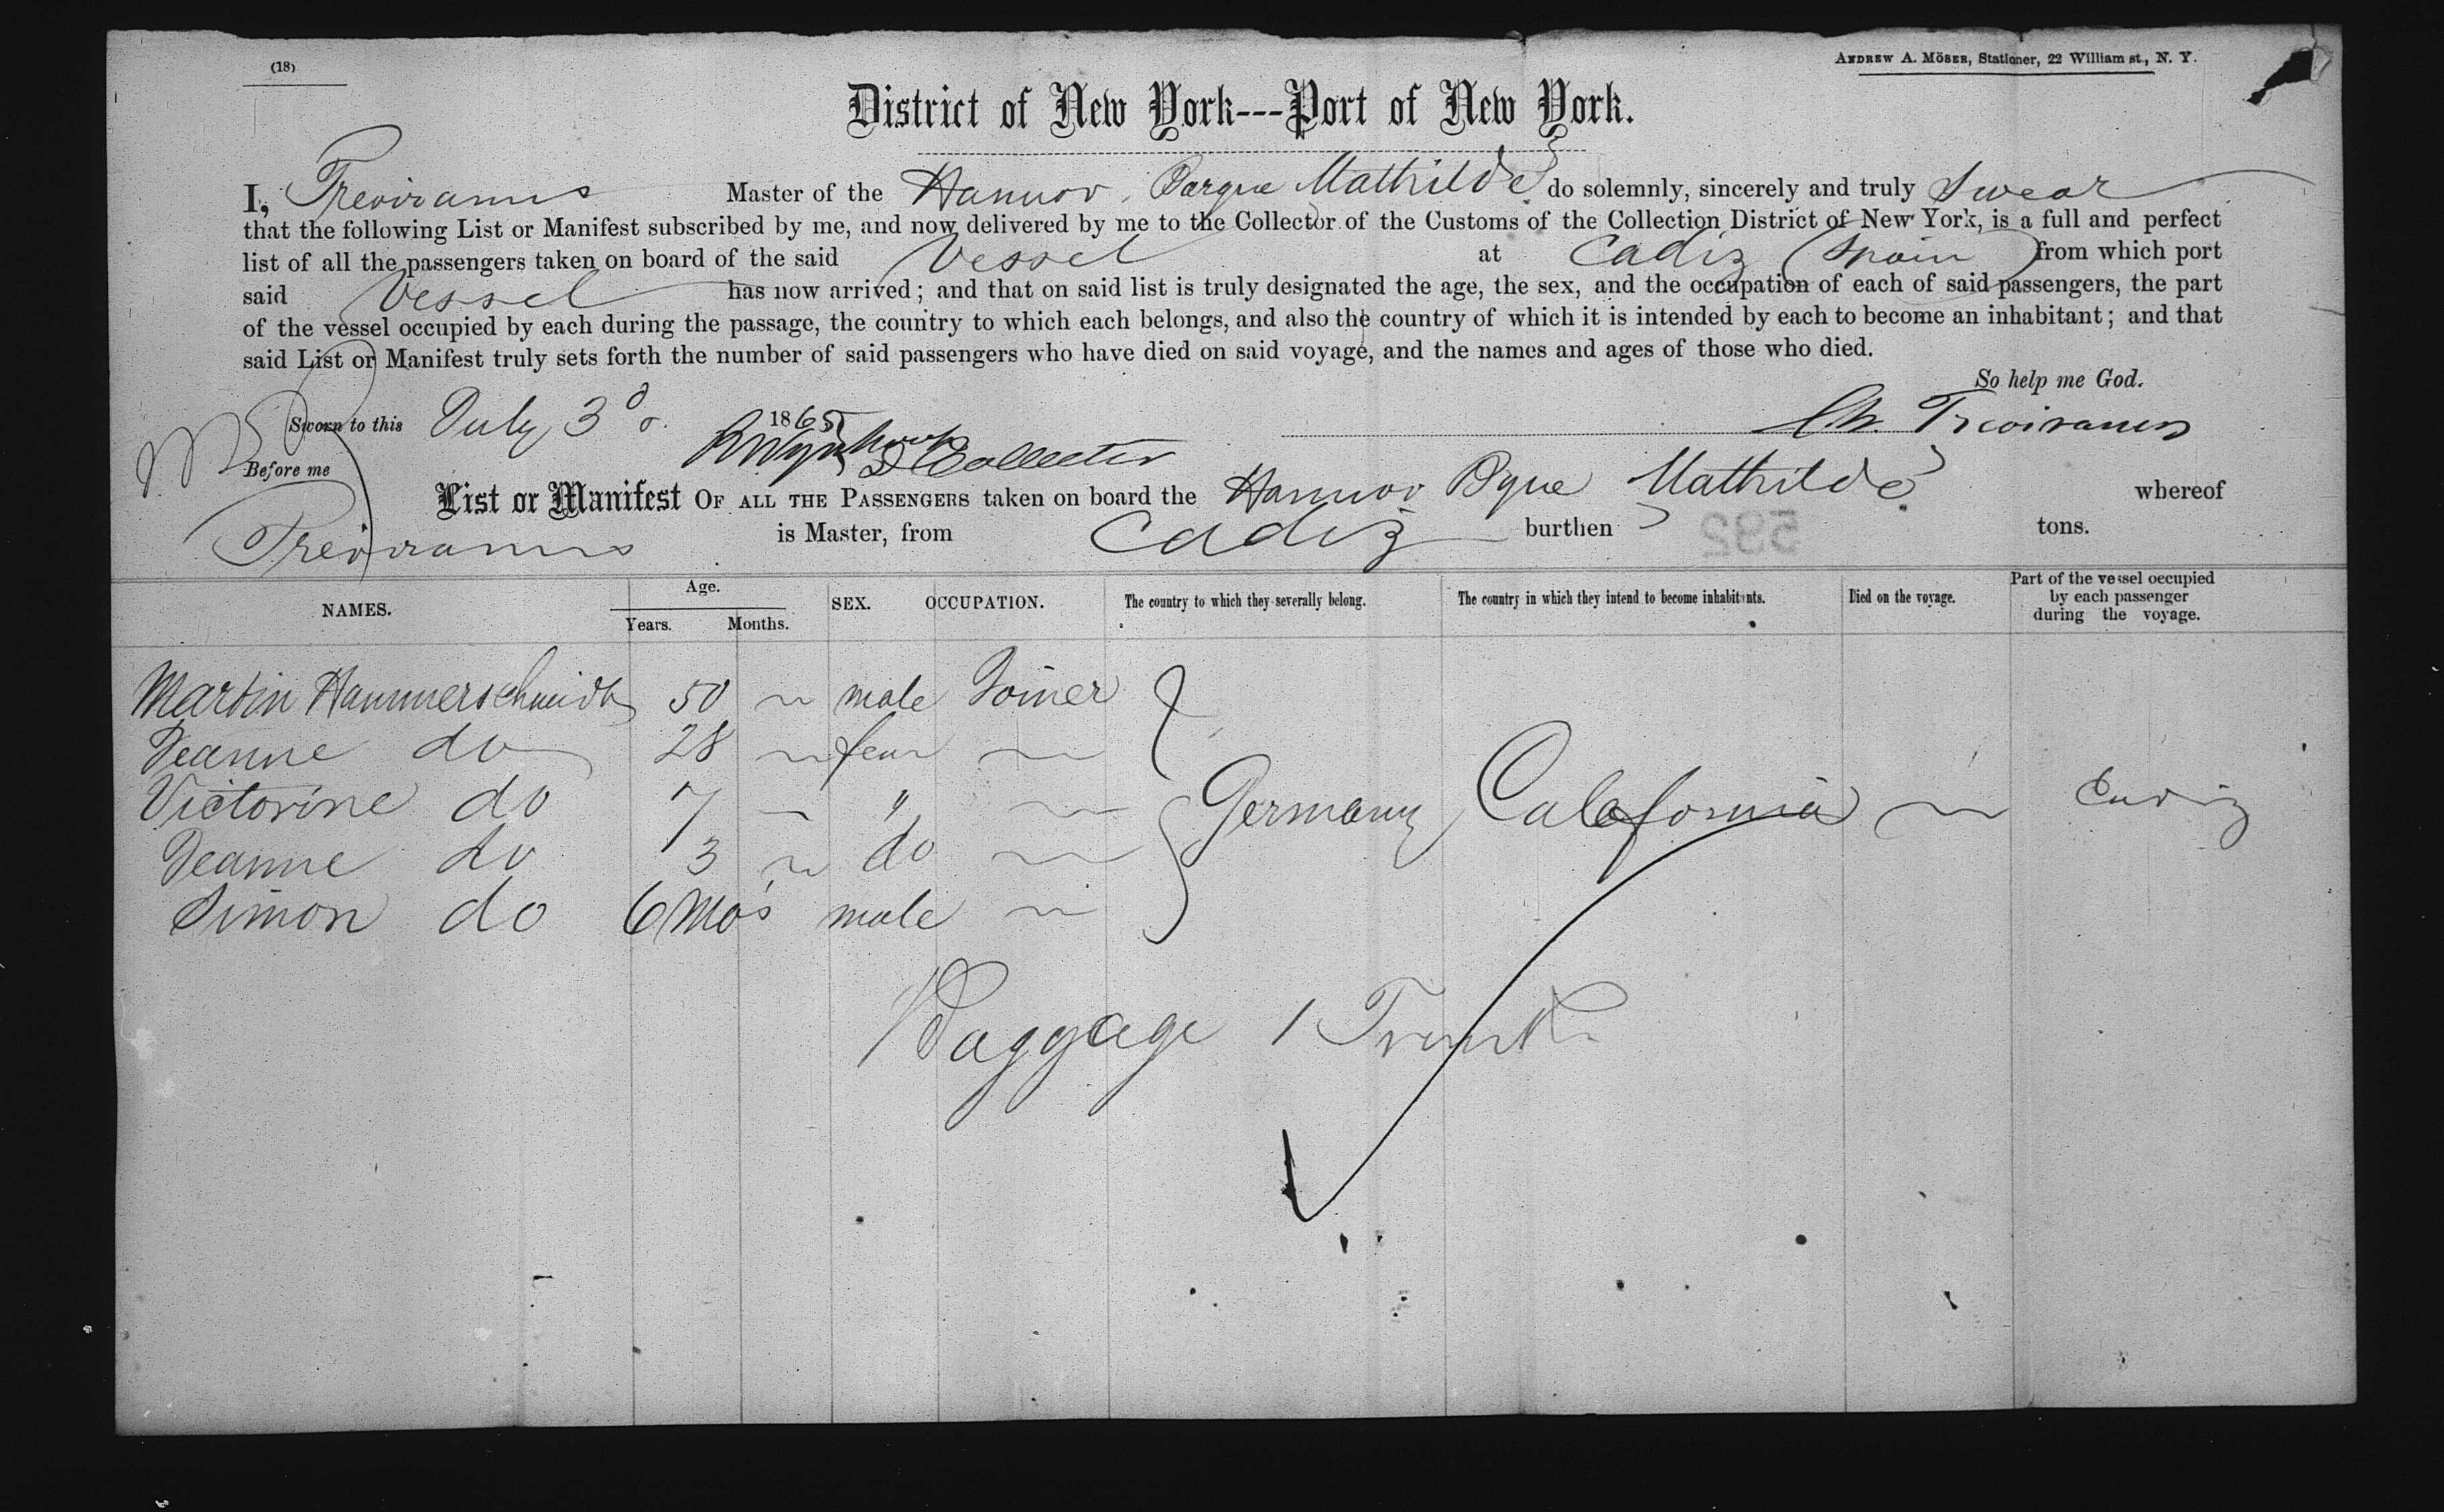 (18)
ANDREW A. MÖSER, Stationer, 22 William st., N. Y.
District of New York---Port of New York.
I, Treviranus Master of the Hannov. Barque Mathilde do solemnly, sincerely and truly swear
that the following List or Manifest subscribed by me, and now delivered by me to the Collector of the Customs of the Collection District of New York, is a full and perfect
list of all the passengers taken on board of the said Vessel at Cadiz (Spain) from which port
said Vessel has now arrived; and that on said list is truly designated the age, the sex, and the occupation of each of said passengers, the part
of the vessel occupied by each during the passage, the country to which each belongs, and also the country of which it is intended by each to become an inhabitant; and that
said List or Manifest truly sets forth the number of said passengers who have died on said voyage, and the names and ages of those who died.
So help me God.
Sworn to this July 3d 1865 Ch. Treviranus
Before me D Collector
List or Manifest OF ALL THE PASSENGERS taken on board the Hannov Bque Mathilde whereof
Treviranus is Master, from Cadiz burthen 592 tons.
NAMES. Age. Years. Months. SEX. OCCUPATION. The country to which they severally belong. The country in which they intend to become inhabitants. Died on the voyage. Part of the vessel occupied by each passenger during the voyage.
Martin Hammerschmidt 50 ~ male Joiner
Jeanne do 28 ~ fem ~
Victorine do 7 ~ " ~ Germany California ~ Cadiz
Jeanne do 3 ~ do ~
Simon do 6 Mos male ~
Baggage 1 Trunk